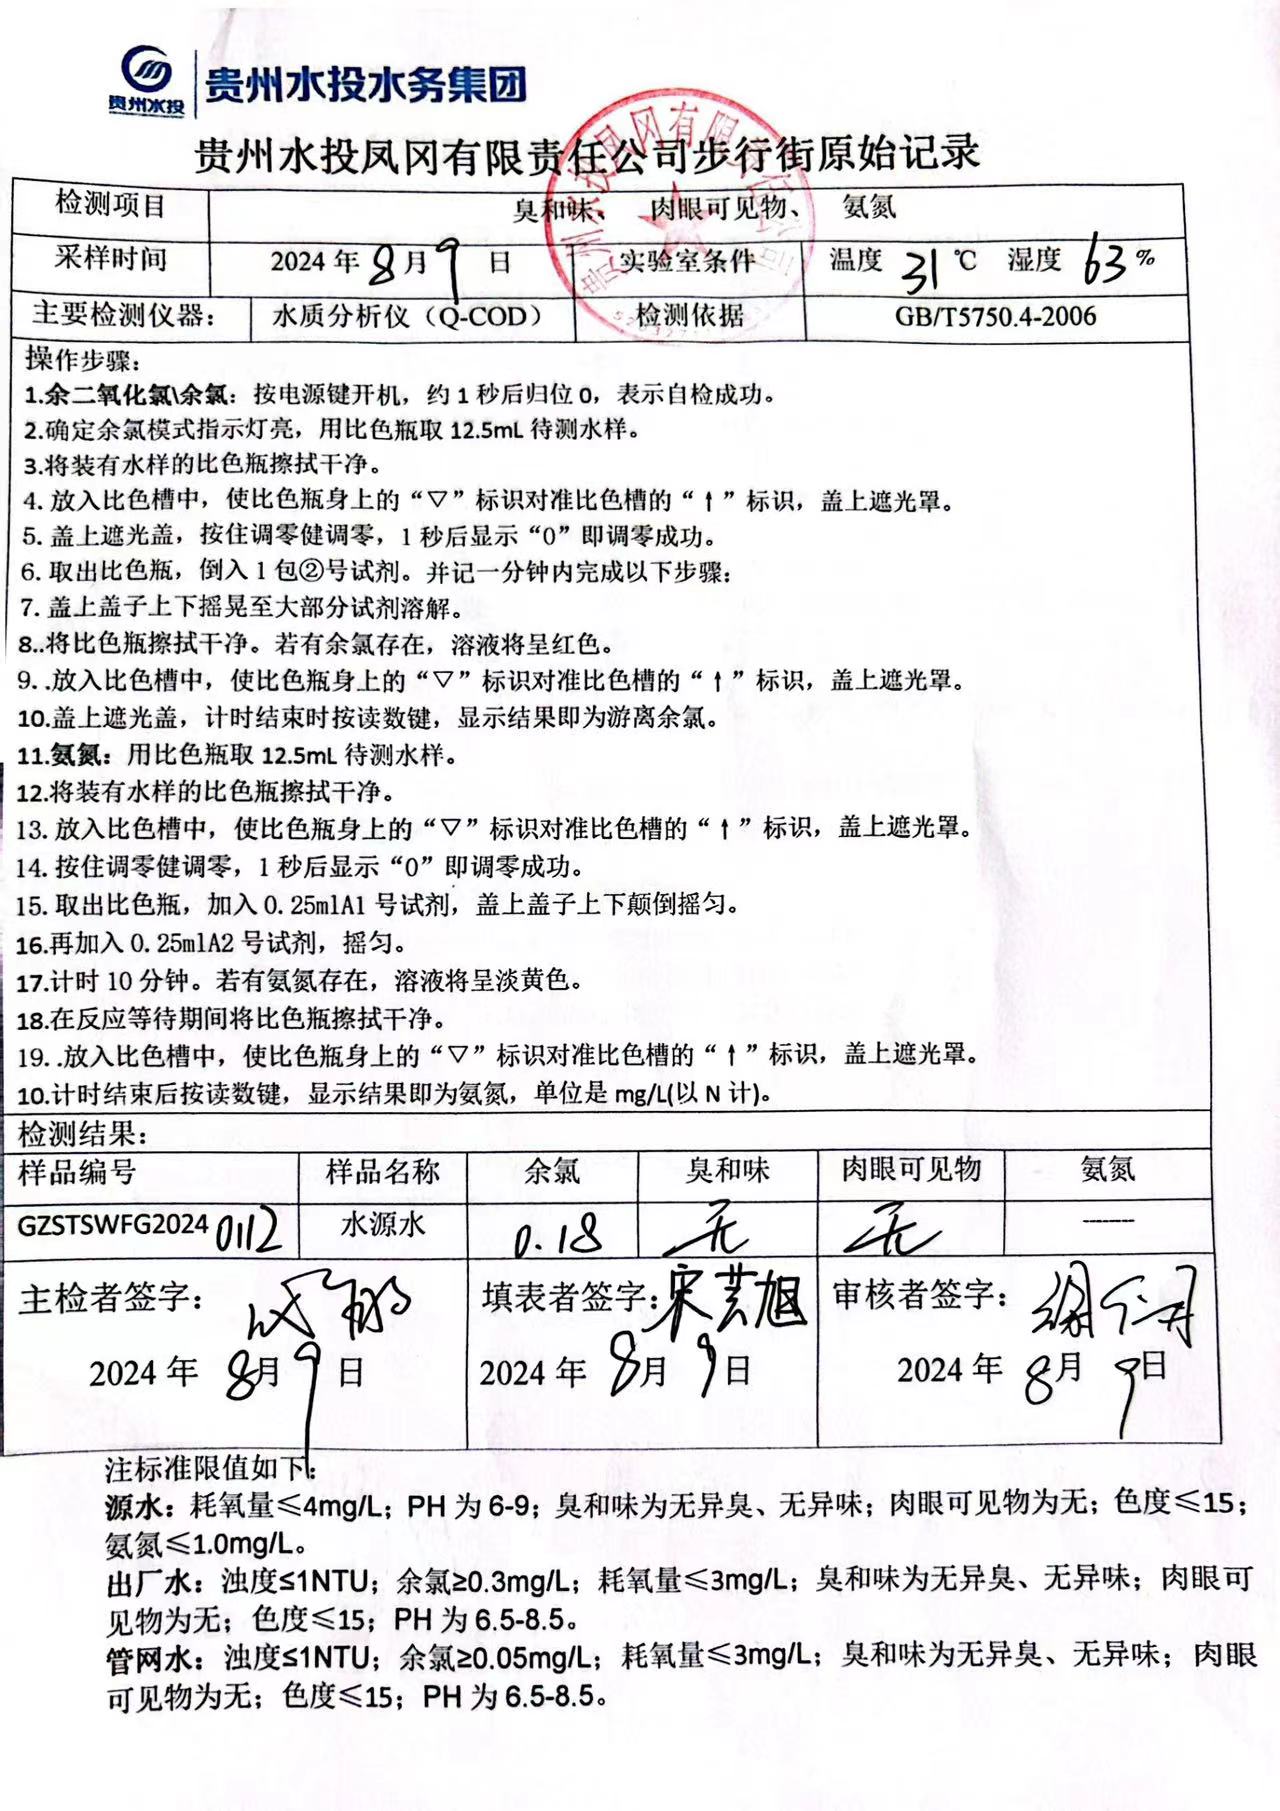 贵州水投 贵州水投水务集团
贵州水投凤冈有限责任公司步行街原始记录
贵州水投凤冈有限责任公司
检测项目 臭和味、 肉眼可见物、 氨氮
采样时间 2024年8月9日 实验室条件 温度31℃ 湿度63%
主要检测仪器： 水质分析仪（Q-COD） 检测依据 GB/T5750.4-2006
操作步骤：
1.余二氧化氯\余氯：按电源键开机，约1秒后归位0，表示自检成功。
2.确定余氯模式指示灯亮，用比色瓶取12.5mL待测水样。
3.将装有水样的比色瓶擦拭干净。
4. 放入比色槽中，使比色瓶身上的“▽”标识对准比色槽的“↑”标识，盖上遮光罩。
5. 盖上遮光盖，按住调零健调零，1秒后显示“0”即调零成功。
6. 取出比色瓶，倒入1包②号试剂。并记一分钟内完成以下步骤：
7. 盖上盖子上下摇晃至大部分试剂溶解。
8..将比色瓶擦拭干净。若有余氯存在，溶液将呈红色。
9. .放入比色槽中，使比色瓶身上的“▽”标识对准比色槽的“↑”标识，盖上遮光罩。
10.盖上遮光盖，计时结束时按读数键，显示结果即为游离余氯。
11.氨氮：用比色瓶取12.5mL待测水样。
12.将装有水样的比色瓶擦拭干净。
13. 放入比色槽中，使比色瓶身上的“▽”标识对准比色槽的“↑”标识，盖上遮光罩。
14. 按住调零健调零，1秒后显示“0”即调零成功。
15. 取出比色瓶，加入0.25mlA1号试剂，盖上盖子上下颠倒摇匀。
16.再加入0.25mlA2号试剂，摇匀。
17.计时10分钟。若有氨氮存在，溶液将呈淡黄色。
18.在反应等待期间将比色瓶擦拭干净。
19. .放入比色槽中，使比色瓶身上的“▽”标识对准比色槽的“↑”标识，盖上遮光罩。
10.计时结束后按读数键，显示结果即为氨氮，单位是mg/L(以N计)。
检测结果：
样品编号 样品名称 余氯 臭和味 肉眼可见物 氨氮
GZSTSWFG20240112 水源水 0.18 无 无 -------
主检者签字： 填表者签字：宋芸旭 审核者签字：
2024年8月9日 2024年8月9日 2024年8月9日
注标准限值如下：
源水：耗氧量≤4mg/L；PH为6-9；臭和味为无异臭、无异味；肉眼可见物为无；色度≤15；
氨氮≤1.0mg/L。
出厂水：浊度≤1NTU；余氯≥0.3mg/L；耗氧量≤3mg/L；臭和味为无异臭、无异味；肉眼可
见物为无；色度≤15；PH为6.5-8.5。
管网水：浊度≤1NTU；余氯≥0.05mg/L；耗氧量≤3mg/L；臭和味为无异臭、无异味；肉眼
可见物为无；色度≤15；PH为6.5-8.5。